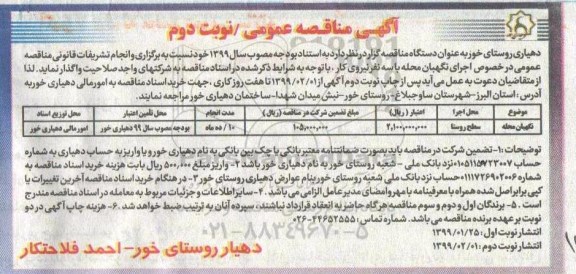 آگهی مناقصه عمومی /نوبت دوم
دهیاری روستای خور به عنوان دستگاه مناقصه گزار در نظر دارد به استناد بودجه مصوب سال ۱۳۹۹ خود نسبت به برگزاری و انجام تشریفات قانونی مناقصه
عمومی در خصوص اجرای نگهبان محله با سه نفر نیروی کار ، با توجه به شرایط ذکر شده در اسناد مناقصه به شرکتهای واجد صلاحیت واگذار نماید. لذا
از متقاضیان دعوت به عمل می آید پس از چاپ نوبت دوم آگهی از ۱۳۹۹/۰۲/۰۱ تا هفت روز کاری ، جهت خرید اسناد مناقصه به امور مالی دهیاری خور به
آدرس: استان البرز-شهرستان ساوجبلاغ- روستای خور-نبش میدان شهدا-ساختمان دهیاری خور مراجعه نمایند.
موضوع محل اجرا اعتبار (ریال) مبلغ تضمین شرکت در مناقصه (ریال) مدت انجام محل تأمین اعتبار محل توزیع اسناد
نگهبان محله سطح روستا ۲,۱۰۰,۰۰۰,۰۰۰ ۱۰۵,۰۰۰,۰۰۰ ۱۰/ ده ماه بودجه مصوب سال ۹۹ دهیاری خور امور مالی دهیاری خور
توضیحات: ۱-تضمین شرکت در مناقصه باید بصورت ضمانتنامه معتبر بانکی یا چک بین بانکی به نام دهیاری خور و یا واریز به حساب دهیاری به شماره
حساب ۰۱۰۵۱۱۵۷۲۳۰۰۷ نزد بانک ملی - شعبه روستای خور به نام دهیاری خور باشد ۲- واریز مبلغ ۵۰۰,۰۰۰ ریال بابت هزینه خرید اسناد مناقصه به
شماره ۰۱۱۱۷۲۶۹۰۲۰۰۶ حساب نزد بانک ملی شعبه روستای خور بنام عوارض دهیاری روستای خور ۳- در هنگام خرید اسناد مناقصه آخرین تغییرات با
کپی برابر اصل شده همراه با معرفینامه با مهر و امضای مدیرعامل الزامی می باشد. ۴-سایر اطلاعات و جزئیات مربوط به معامله در اسناد مناقصه مندرج
است . ۵- برندگان اول و دوم و سوم مناقصه هرگاه حاضر به انعقاد قرارداد نباشند، سپرده آنان به ترتیب ضبط خواهد شد .۶- هزینه چاپ آگهی در دو
نوبت بر عهده برنده مناقصه می باشد. شماره تماس: ۴۴۶۵۲۵۵۵-۰۲۶
انتشار نوبت اول: ۱۳۹۹/۰۱/۲۵
انتشار نوبت دوم: ۱۳۹۹/۰۲/۰۱
۰۲۱-۸۸۳۴۹۶۷۰-۵
دهیار روستای خور- احمد فلاحتکار